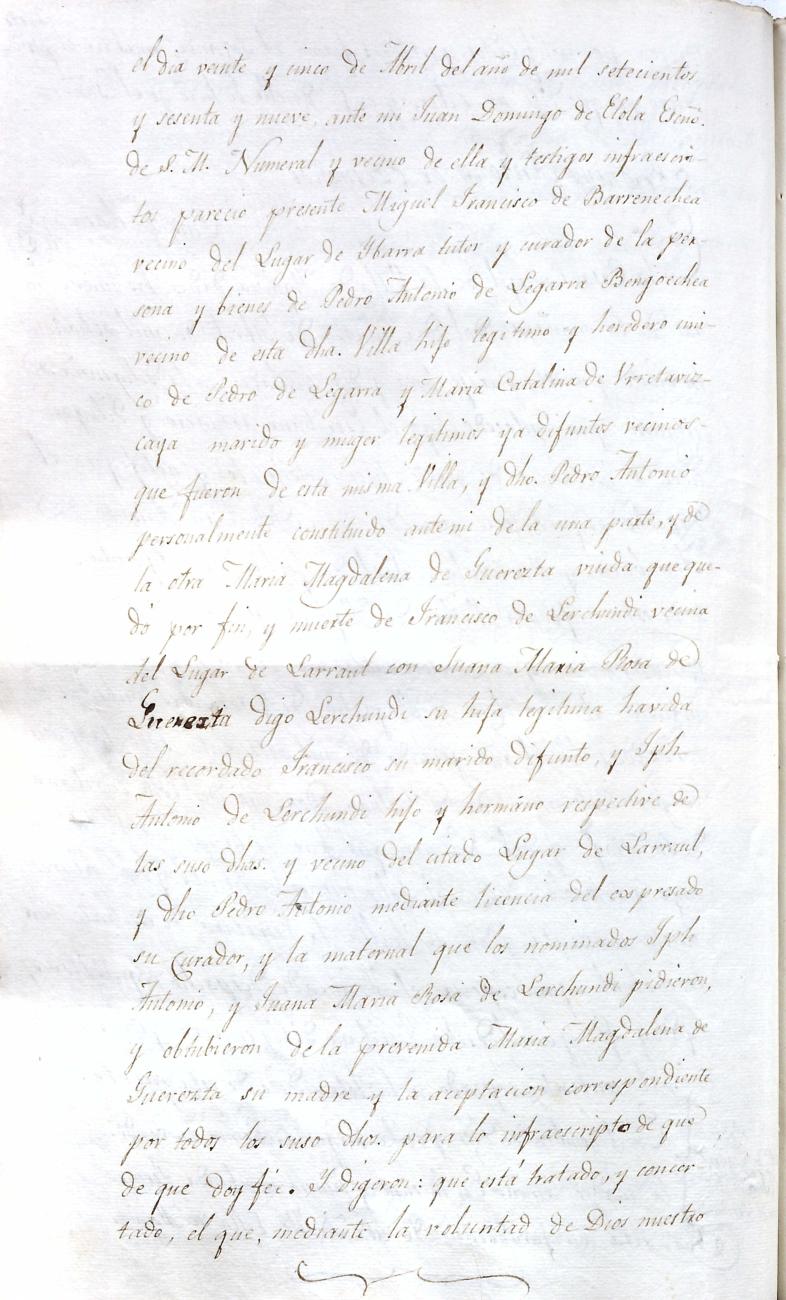 el dia veinte y cinco de Abril del año de mil setecientos
y sesenta y nueve, ante mi Juan Domingo de Elola Esñō.
de S. M. Numeral y vecino de ella y testigos infraescri-
tos parecio presente Miguel Francisco de Barrenechea
vecino del Lugar de Ybarra tutor y curador de la per-
sona y bienes de Pedro Antonio de Legarra Bengoechea
vecino de esta dha. Villa hijo legitimo y heredero uni-
co de Pedro de Legarra y Maria Catalina de Vrretaviz-
caya marido y muger legitimos ya difuntos vecinos-
que fueron de esta misma Villa, y dho. Pedro Antonio
personalmente constituido ante mi de la una parte, y de
la otra Maria Magdalena de Guerezta viuda que que-
dó por fin, y muerte de Francisco de Lerchundi vecina
del Lugar de Larraul con Juana Maria Rosa de
Guerezta digo Lerchundi su hija legitima havida
del recordado Francisco su marido difunto, y Jph
Antonio de Lerchundi hijo y hermano respective de
las suso dhas. y vecino del citado Lugar de Larraul,
y dho Pedro Antonio mediante licencia del expresado
su Curador, y la maternal que los nominados Jph
Antonio, y Juana Maria Rosa de Lerchundi pidieron,
y obtubieron de la prevenida Maria Magdalena de
Guerezta su madre y la aceptacion correspondiente
por todos los suso dhos. para lo infraescripto de que
de que doy feé. Y digeron: que está tratado, y concer-
tado, el que, mediante la voluntad de Dios nuestro